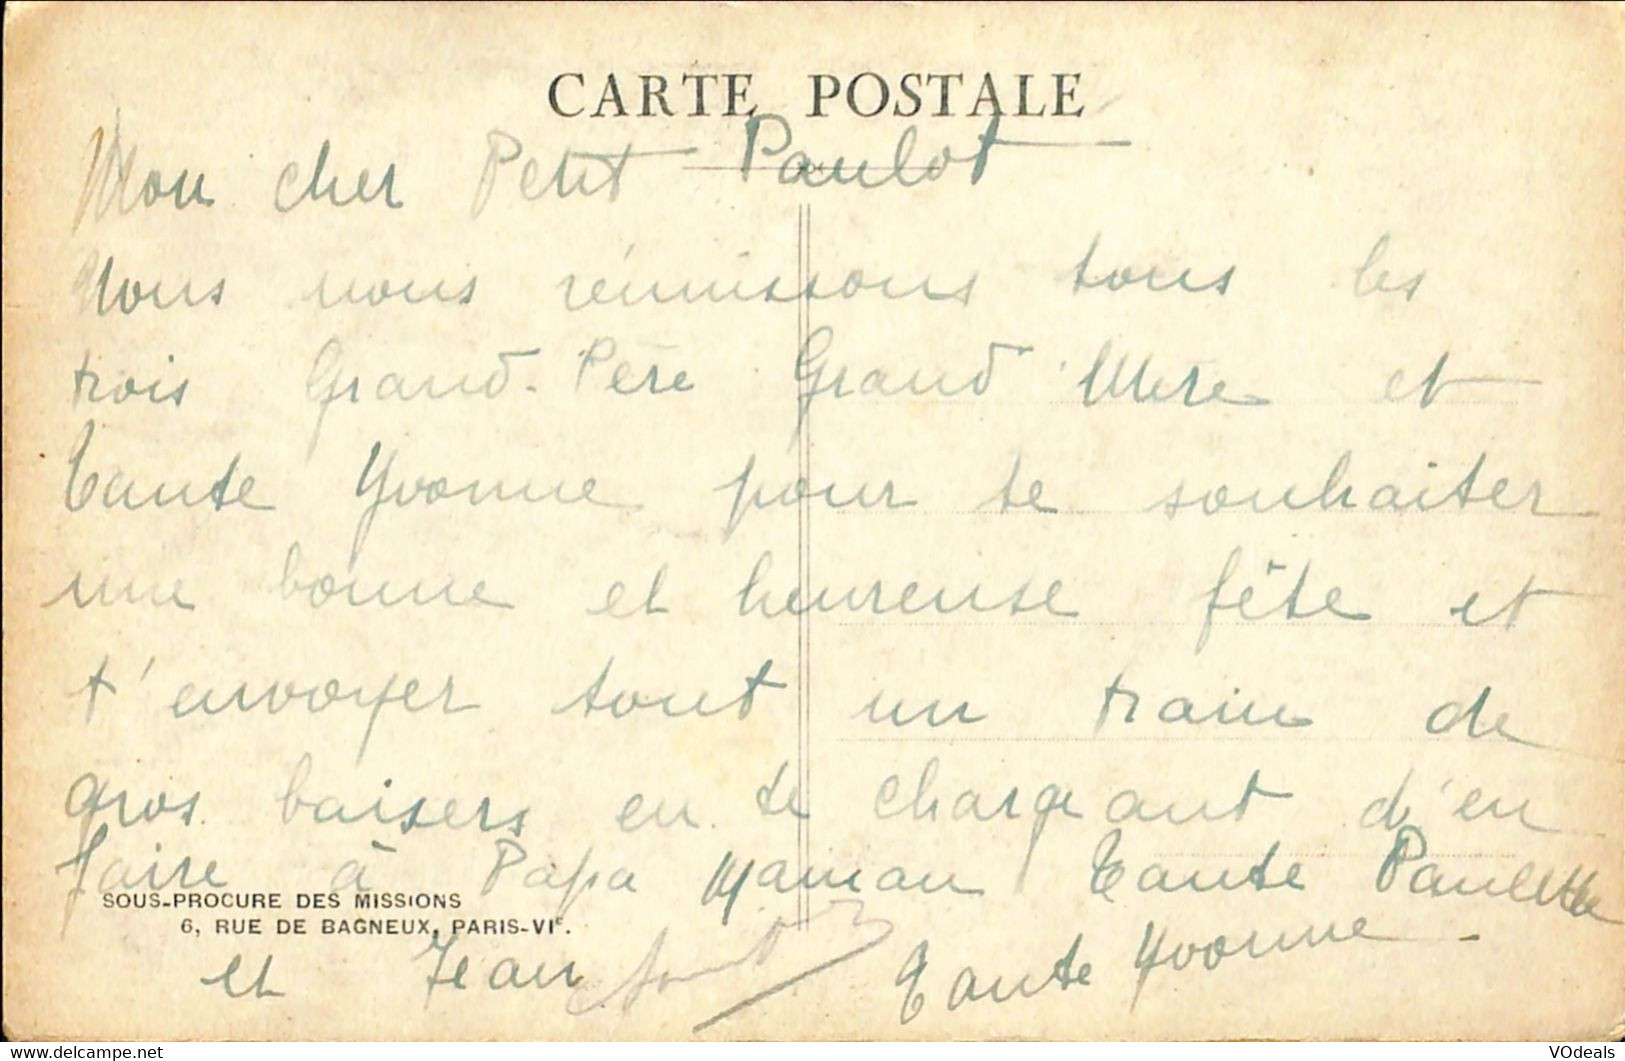 CARTE POSTALE
Mon cher Petit Paulot
Nous nous réunissons tous les
trois Grand-Père Grand Mère et
Tante Yvonne pour te souhaiter
une bonne et heureuse fête et
t'envoyer tout un train de
gros baisers en te chargeant d'en
faire à Papa Maman Tante Paulette
SOUS-PROCURE DES MISSIONS
6, RUE DE BAGNEUX, PARIS-VIe.
et Jean
Tante Yvonne
VOdeals
http://www.delcampe.net